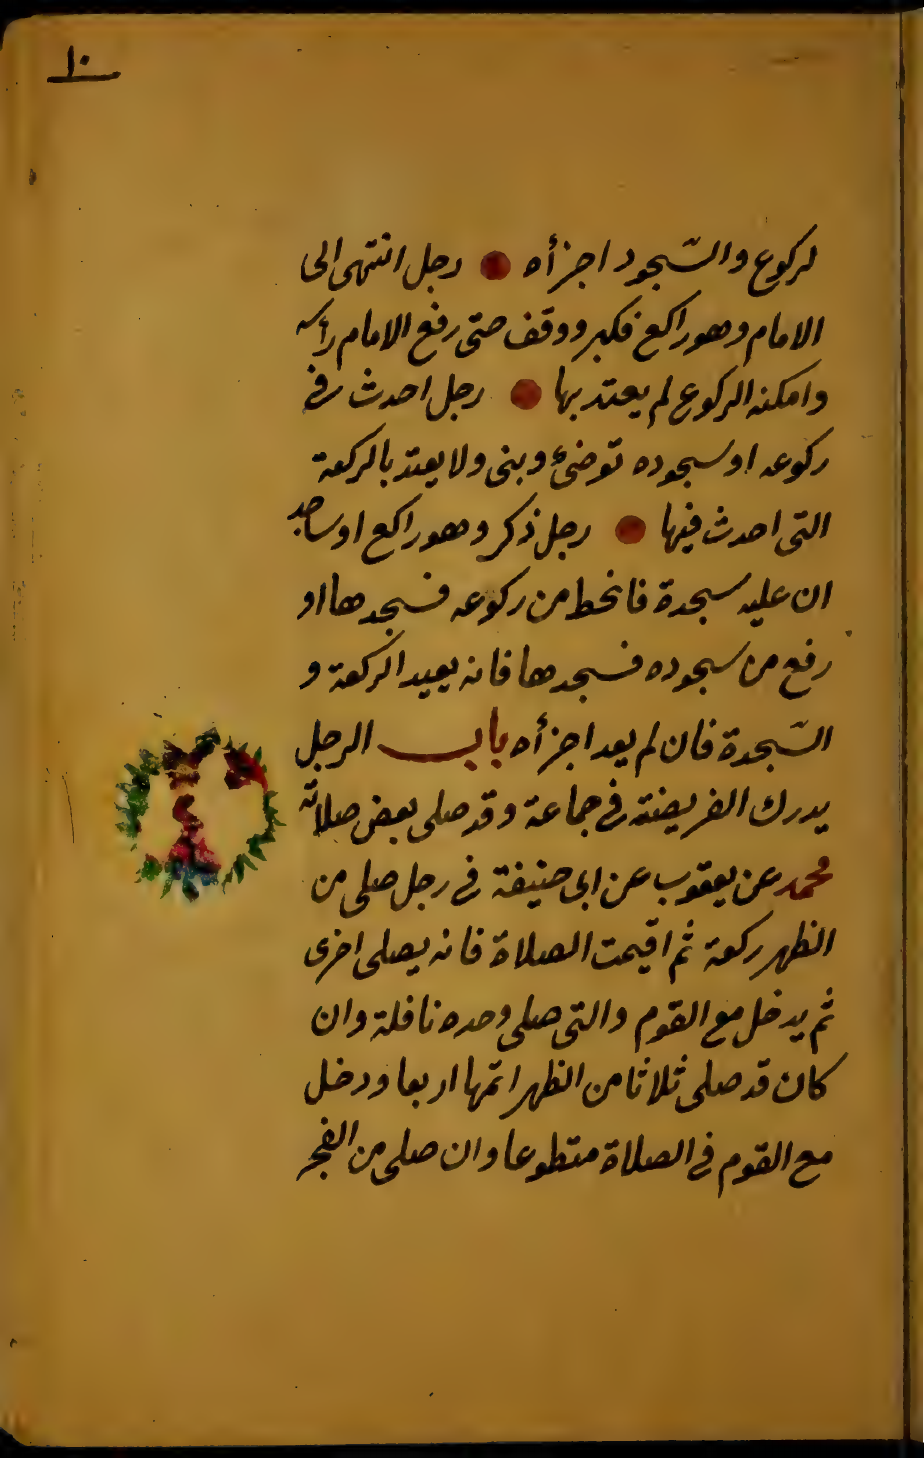 ١٠
لركوع والسّجود اجزأه ● رجل انتهى الى
الامام وهو راكع فكبر ووقف حتى رفع الامام رأسه
وامكنه الركوع لم يعتد بها ● رجل احدث في
ركوعه او سجوده توضئ وبنى ولا يعتد بالركعة
التى احدث فيها ● رجل ذكر وهو راكع او ساجد
ان عليه سجدة فانحط من ركوعه فسجدها او
رفع من سجوده فسجدها فانه يعيد الركعة و
السّجدة فان لم يعد اجزأه باب الرجل
يدرك الفريضة في جماعة وقد صلى بعض صلاته
محمد عن يعقوب عن ابى حنيفة في رجل صلى من
الظهر ركعة ثم اقيمت الصلاة فانه يصلى اخرى
ثم يدخل مع القوم والتى صلى وحده نافلة وان
كان قد صلى ثلاثا من الظهر اتمها اربعا ودخل
مع القوم في الصلاة متطوعا وان صلى من الفجر